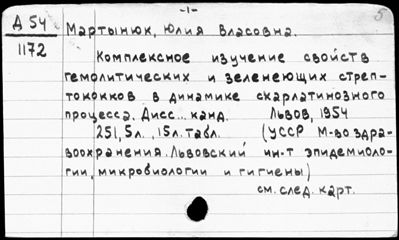 -1-
5
Д 54
1172
Мартынюк, Юлия Власовна.
Комплексное изучение свойств
гемолитических и зеленеющих стреп-
тококков в динамике скарлатинозного
процесса. Дисс... канд. Львов, 1954
251, 5л., 15л. табл. (УССР М-во здра-
воохранения. Львовский ин-т эпидемиоло-
гии, микробиологии и гигиены)
см. след. карт.